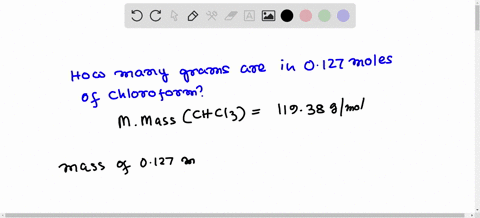 How many grams are in 0.127 moles
of chloroform?
M.Mass (CHCl3) = 119.38 g/mol
mass of 0.127 m